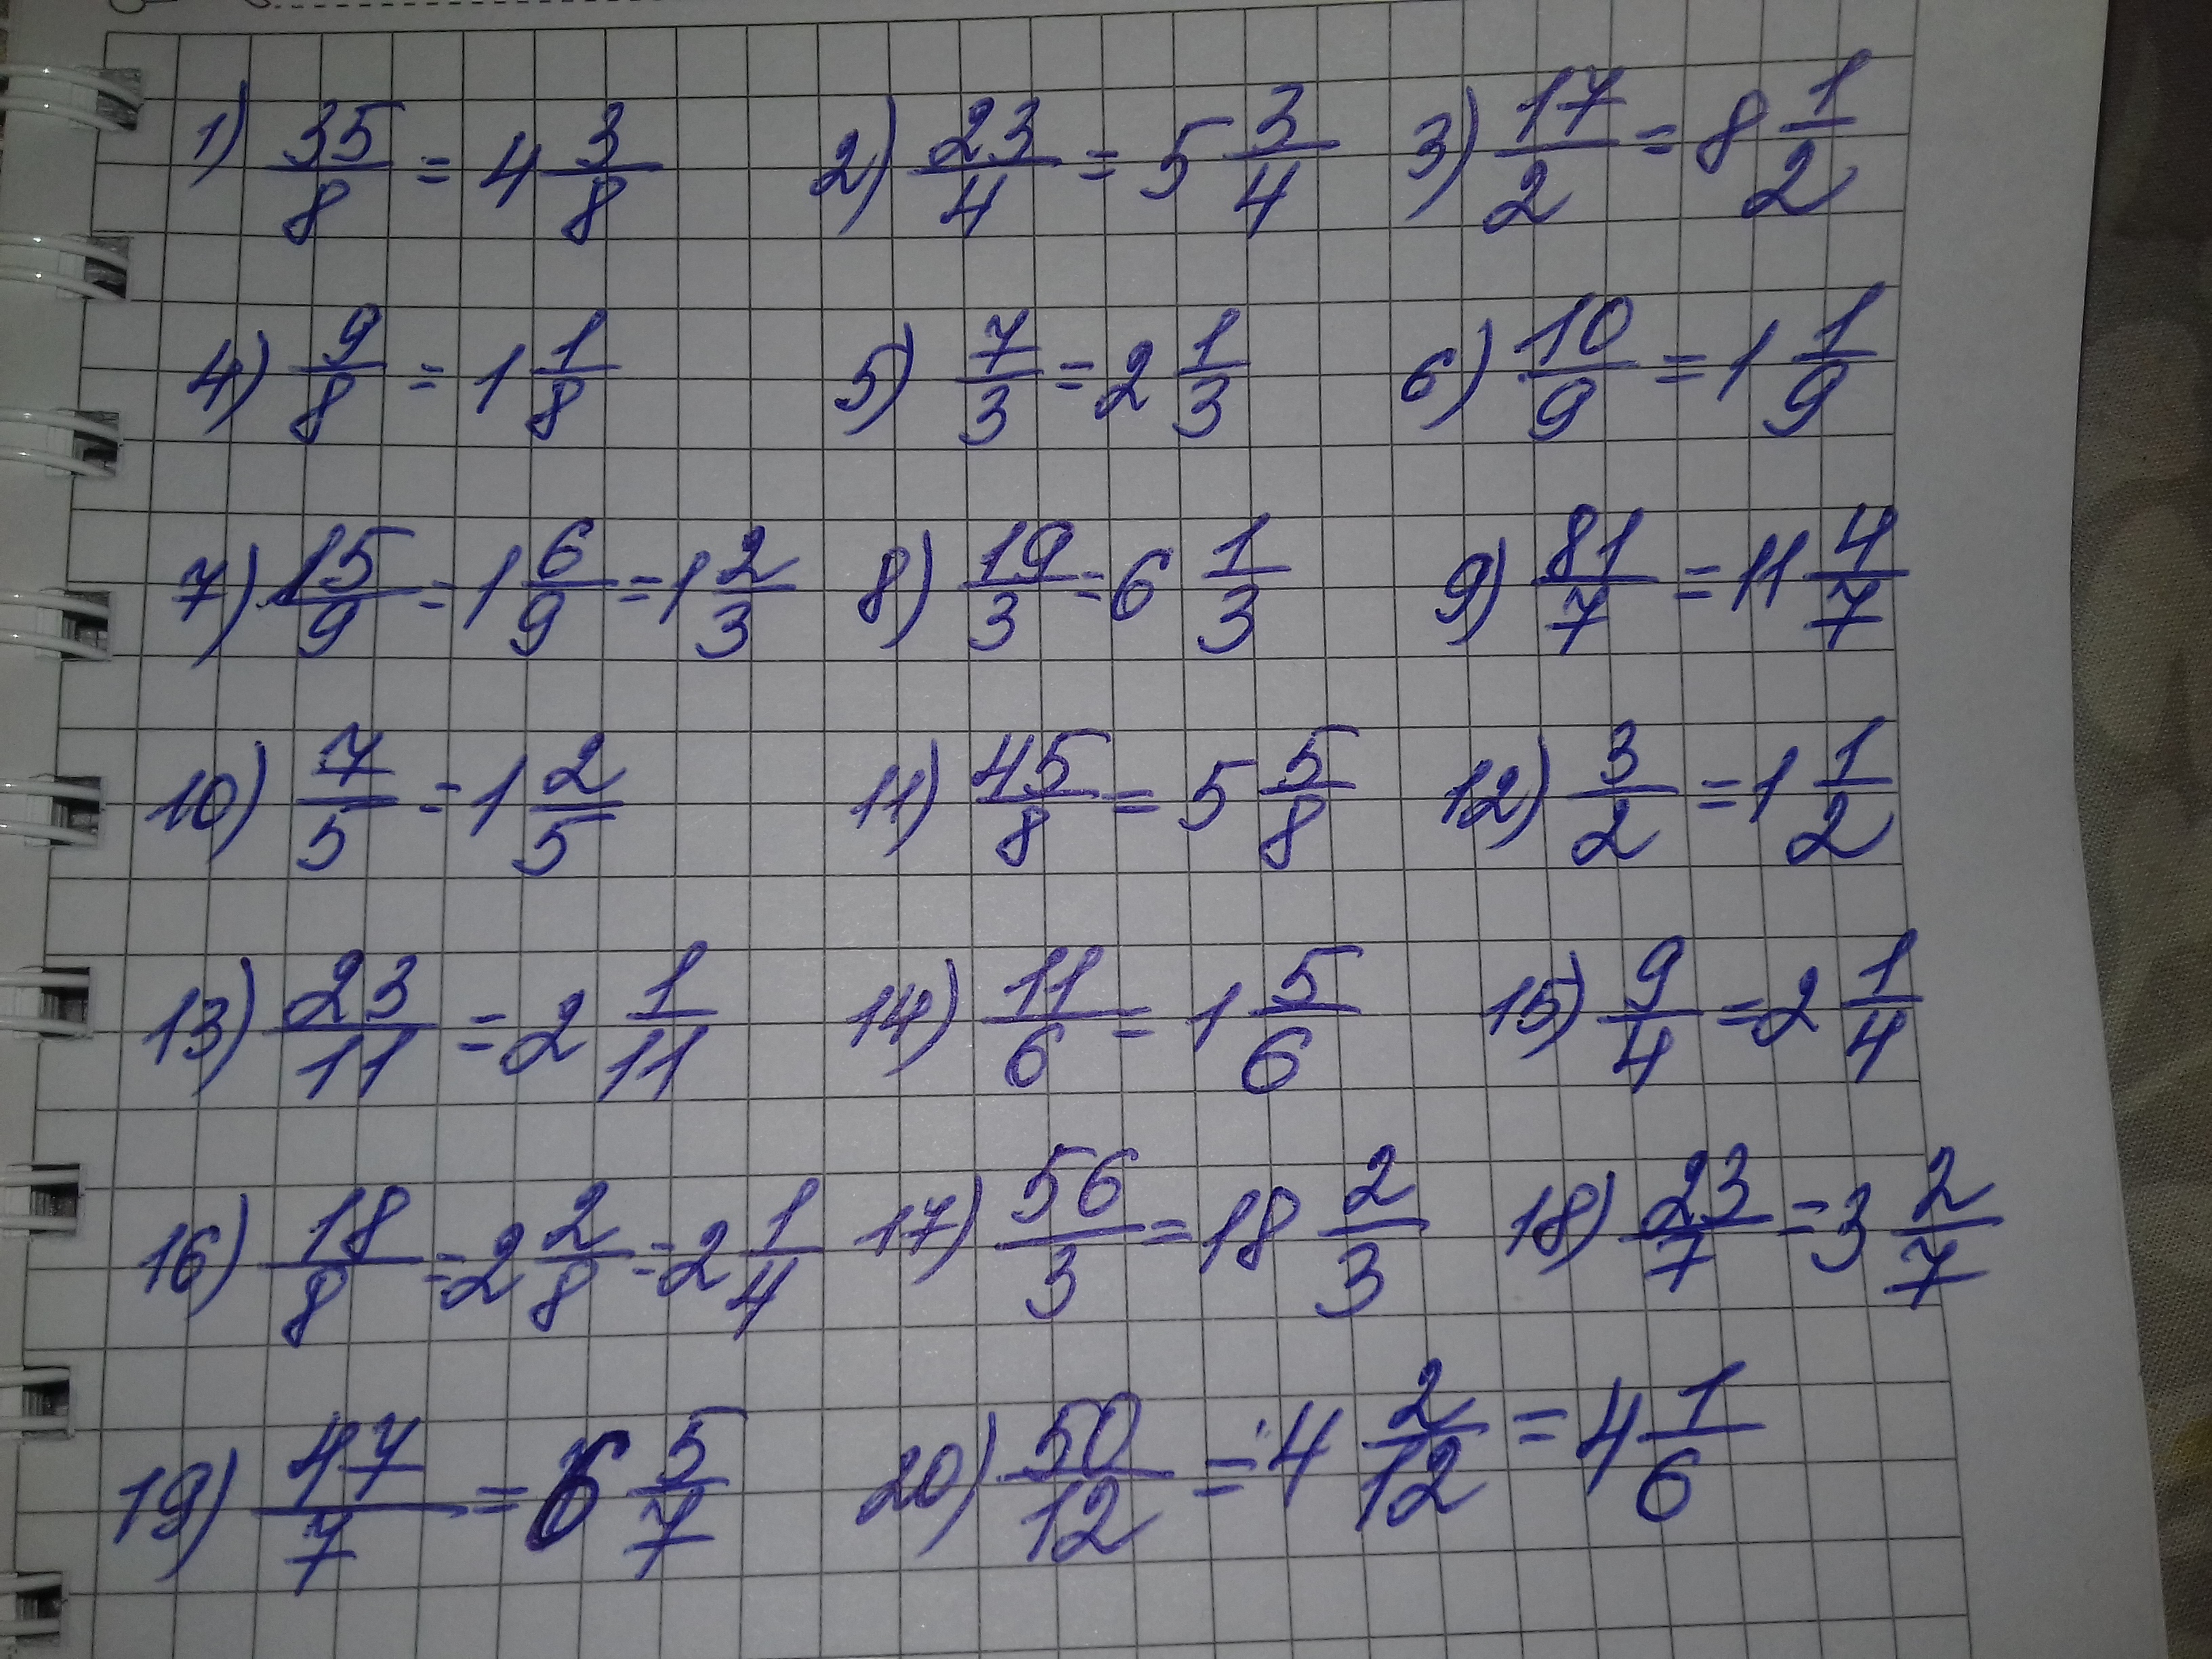 1) 35/8 = 4 3/8 2) 23/4 = 5 3/4 3) 17/2 = 8 1/2
4) 9/8 = 1 1/8 5) 7/3 = 2 1/3 6) 10/9 = 1 1/9
7) 15/9 = 1 6/9 = 1 2/3 8) 19/3 = 6 1/3 9) 81/7 = 11 4/7
10) 7/5 = 1 2/5 11) 45/8 = 5 5/8 12) 3/2 = 1 1/2
13) 23/11 = 2 1/11 14) 11/6 = 1 5/6 15) 9/4 = 2 1/4
16) 18/8 = 2 2/8 = 2 1/4 17) 56/3 = 18 2/3 18) 23/7 = 3 2/7
19) 47/7 = 6 5/7 20) 50/12 = 4 2/12 = 4 1/6